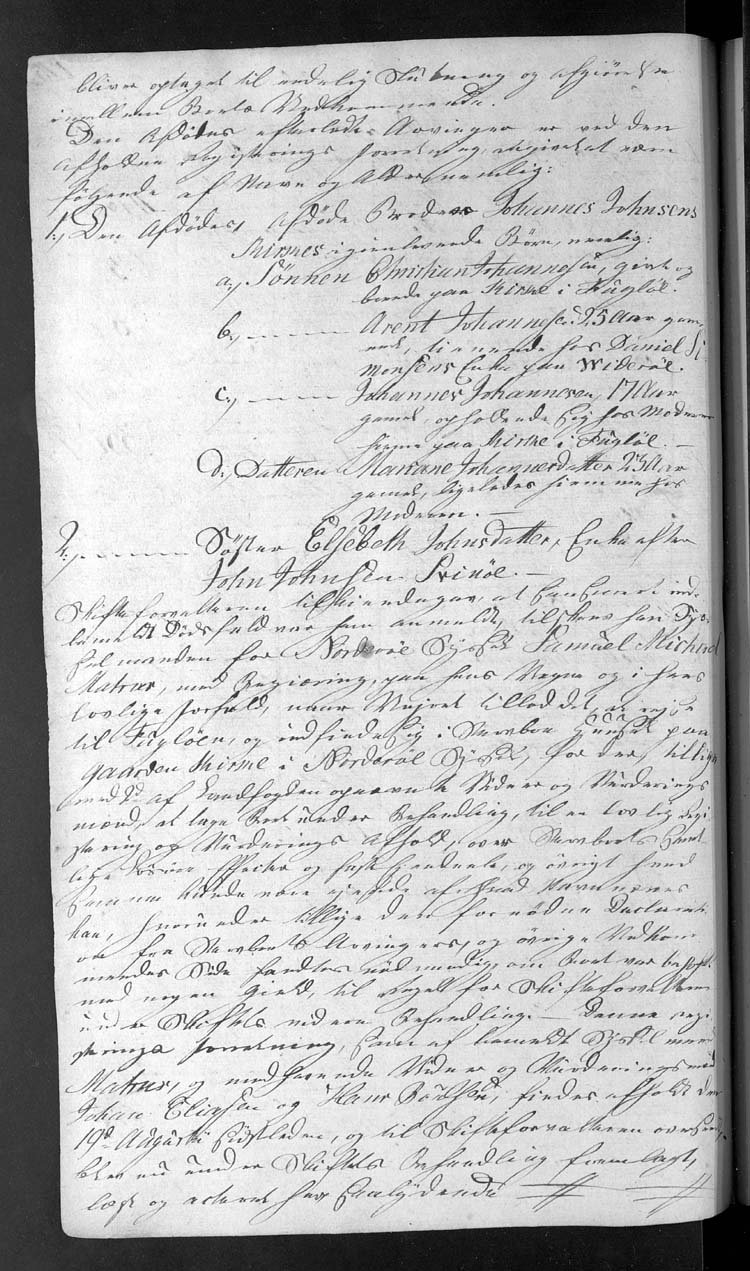 bliver optaget til endelig Slutning og afgiørelse
imellem Boets Vedkommende.
Den Afdødes efterladte Arvinger er ved den
afholdne Registrerings forretning, angivet at være
følgende af Navn og Alder nemlig:
1.) Den Afdødes, afdøde Broder Johannes Johnsens
Kirkes igienlevende Børn, nemlig:
a.) Sønnen Christian Johannesen, givt og
boende paa Kirke i Fugløe.
b.) — — — Arent Johannesen 25 Aar gam-
mel, tienende hos Daniel Si-
monsens Enke paa Widerøe.
c.) — — — Johannes Johannesen, 17 Aar
gammel, opholdende sig hos Moderen
hieme paa Kirke i Fugløe. —
d.) Datteren Mariane Johannesdatter 23 Aar
gammel, ligeledes hiemme hos
Moderen. —
2.) — — — Søster Elsebeth Johnsdatter, Enke efter
John Johnsen Svinøe. —
Skifteforvalteren tilkiendegav, at
Dødsfald var ham anmeldt, tilskrev han Sys-
selmanden for Norderøe Syssel Samuel Michael
Matras, med Begiæring, paa hans Vegne og i hans
lovlige forfald, naar Veiret tillod det, at reise
til Fugløen, og indfinde sig i Stervboe Huuset paa
Gaarden Kirke i Norderøe Syssel, for der, tillige
med 2de af Landfogden opnævnte Vidner og Vurderings
mænd, at tage Boet under Behandling, til en lovlig Regi-
strering og Vurderings Afhold, over Stervboets
Effecter og og øvrigt hvad
sammen kunde være eiende af hvad Navn nævnes
kan, hvorunder tillige den fornødne Declarati-
on fra Stervboets Arvingers, og øvrige Vedkom-
mendes Side fandtes nødvendig, om Boet var behæftet
med nogen Gield, til for Skifteforvalteren
under Skiftets videre Behandling. — Denne Regi-
strerings forretning, som af bemeldt Sysselmand
Matras, og medhavende Vidner og Vurderingsmænd
Johan Eliasen og Hans findes afholdt den
19de Augusti sidstleden, og til Skifteforvalteren oversendt,
blev nu under Skiftets Behandling fremlagt,
læst og acteret saalydende